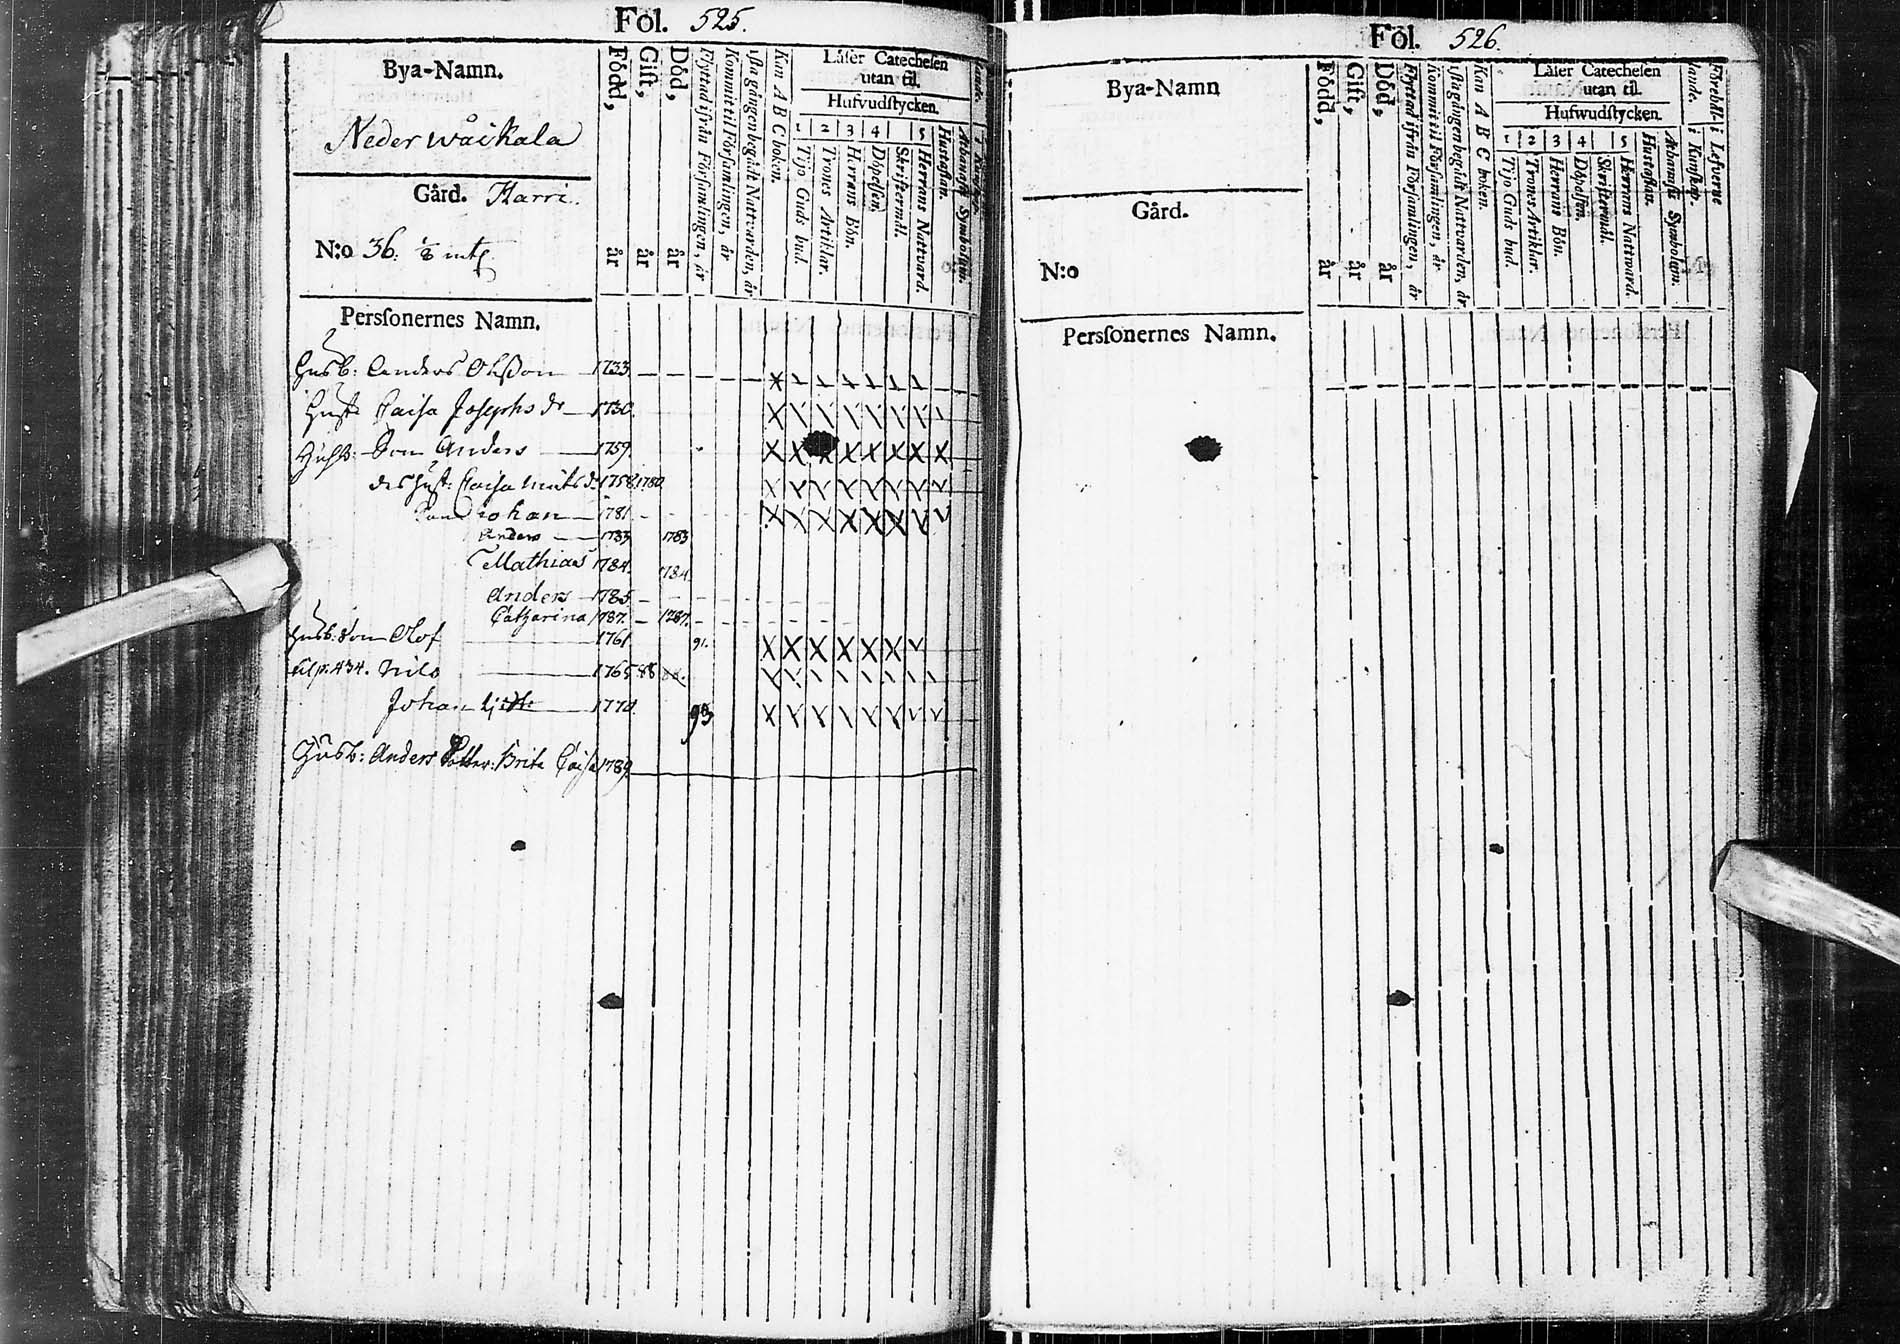 Fol. 525.
Bya-Namn.
Neder wåikala
Gård. Harri.
N:o 36. 1/8 mtl
Född, år
Gift, år
Död, år
Flyttad ifrån Församlingen, år
Kommit til Församlingen, år
Kan A B C boken.
Låser Catechesen
utan til.
Hufvudstycken.
1 2 3 4 5
Tijo Guds bud.
Trones Artiklar.
Herrans Bön.
Döpelsen.
Skriftermål.
Herrans Nattvard.
Hustaflan.
Athanasii Symbolum.
Perssonernes Namn.
Husb: Anders Olsson 1733
Hust: Caisa Josephs dr 1730
Husb: Son Anders 1759
des Hust: Caisa Mats dr 1758 1780
Son Johan 1781
Anders 1783 1783
Mathias 1784 1784
Anders 1785
Catharina 1787 1787
Husb: Son Olof 1761 91.
til p. 434. Nils 1765 88
Johan 1770 93
Husb: Anders Dotter: Brita Caisa 1789
Fol. 526.
Bya-Namn
Gård.
N:o
Född, år
Gift, år
Död, år
Flyttad ifrån Församlingen, år
Kommit til Församlingen, år
istagången begådt Nattvarden, år
Kan A B C boken.
Låser Catechesen
utan til.
Hufwudstycken.
1 2 3 4 5
Tijo Guds bud.
Trones Artiklar.
Herrans Bön.
Döpelsen.
Skriftermål.
Herrans Nattward.
Hustaflan.
Athanasii Symbolum.
i Kunskap.
i Lefverne
Perssonernes Namn.